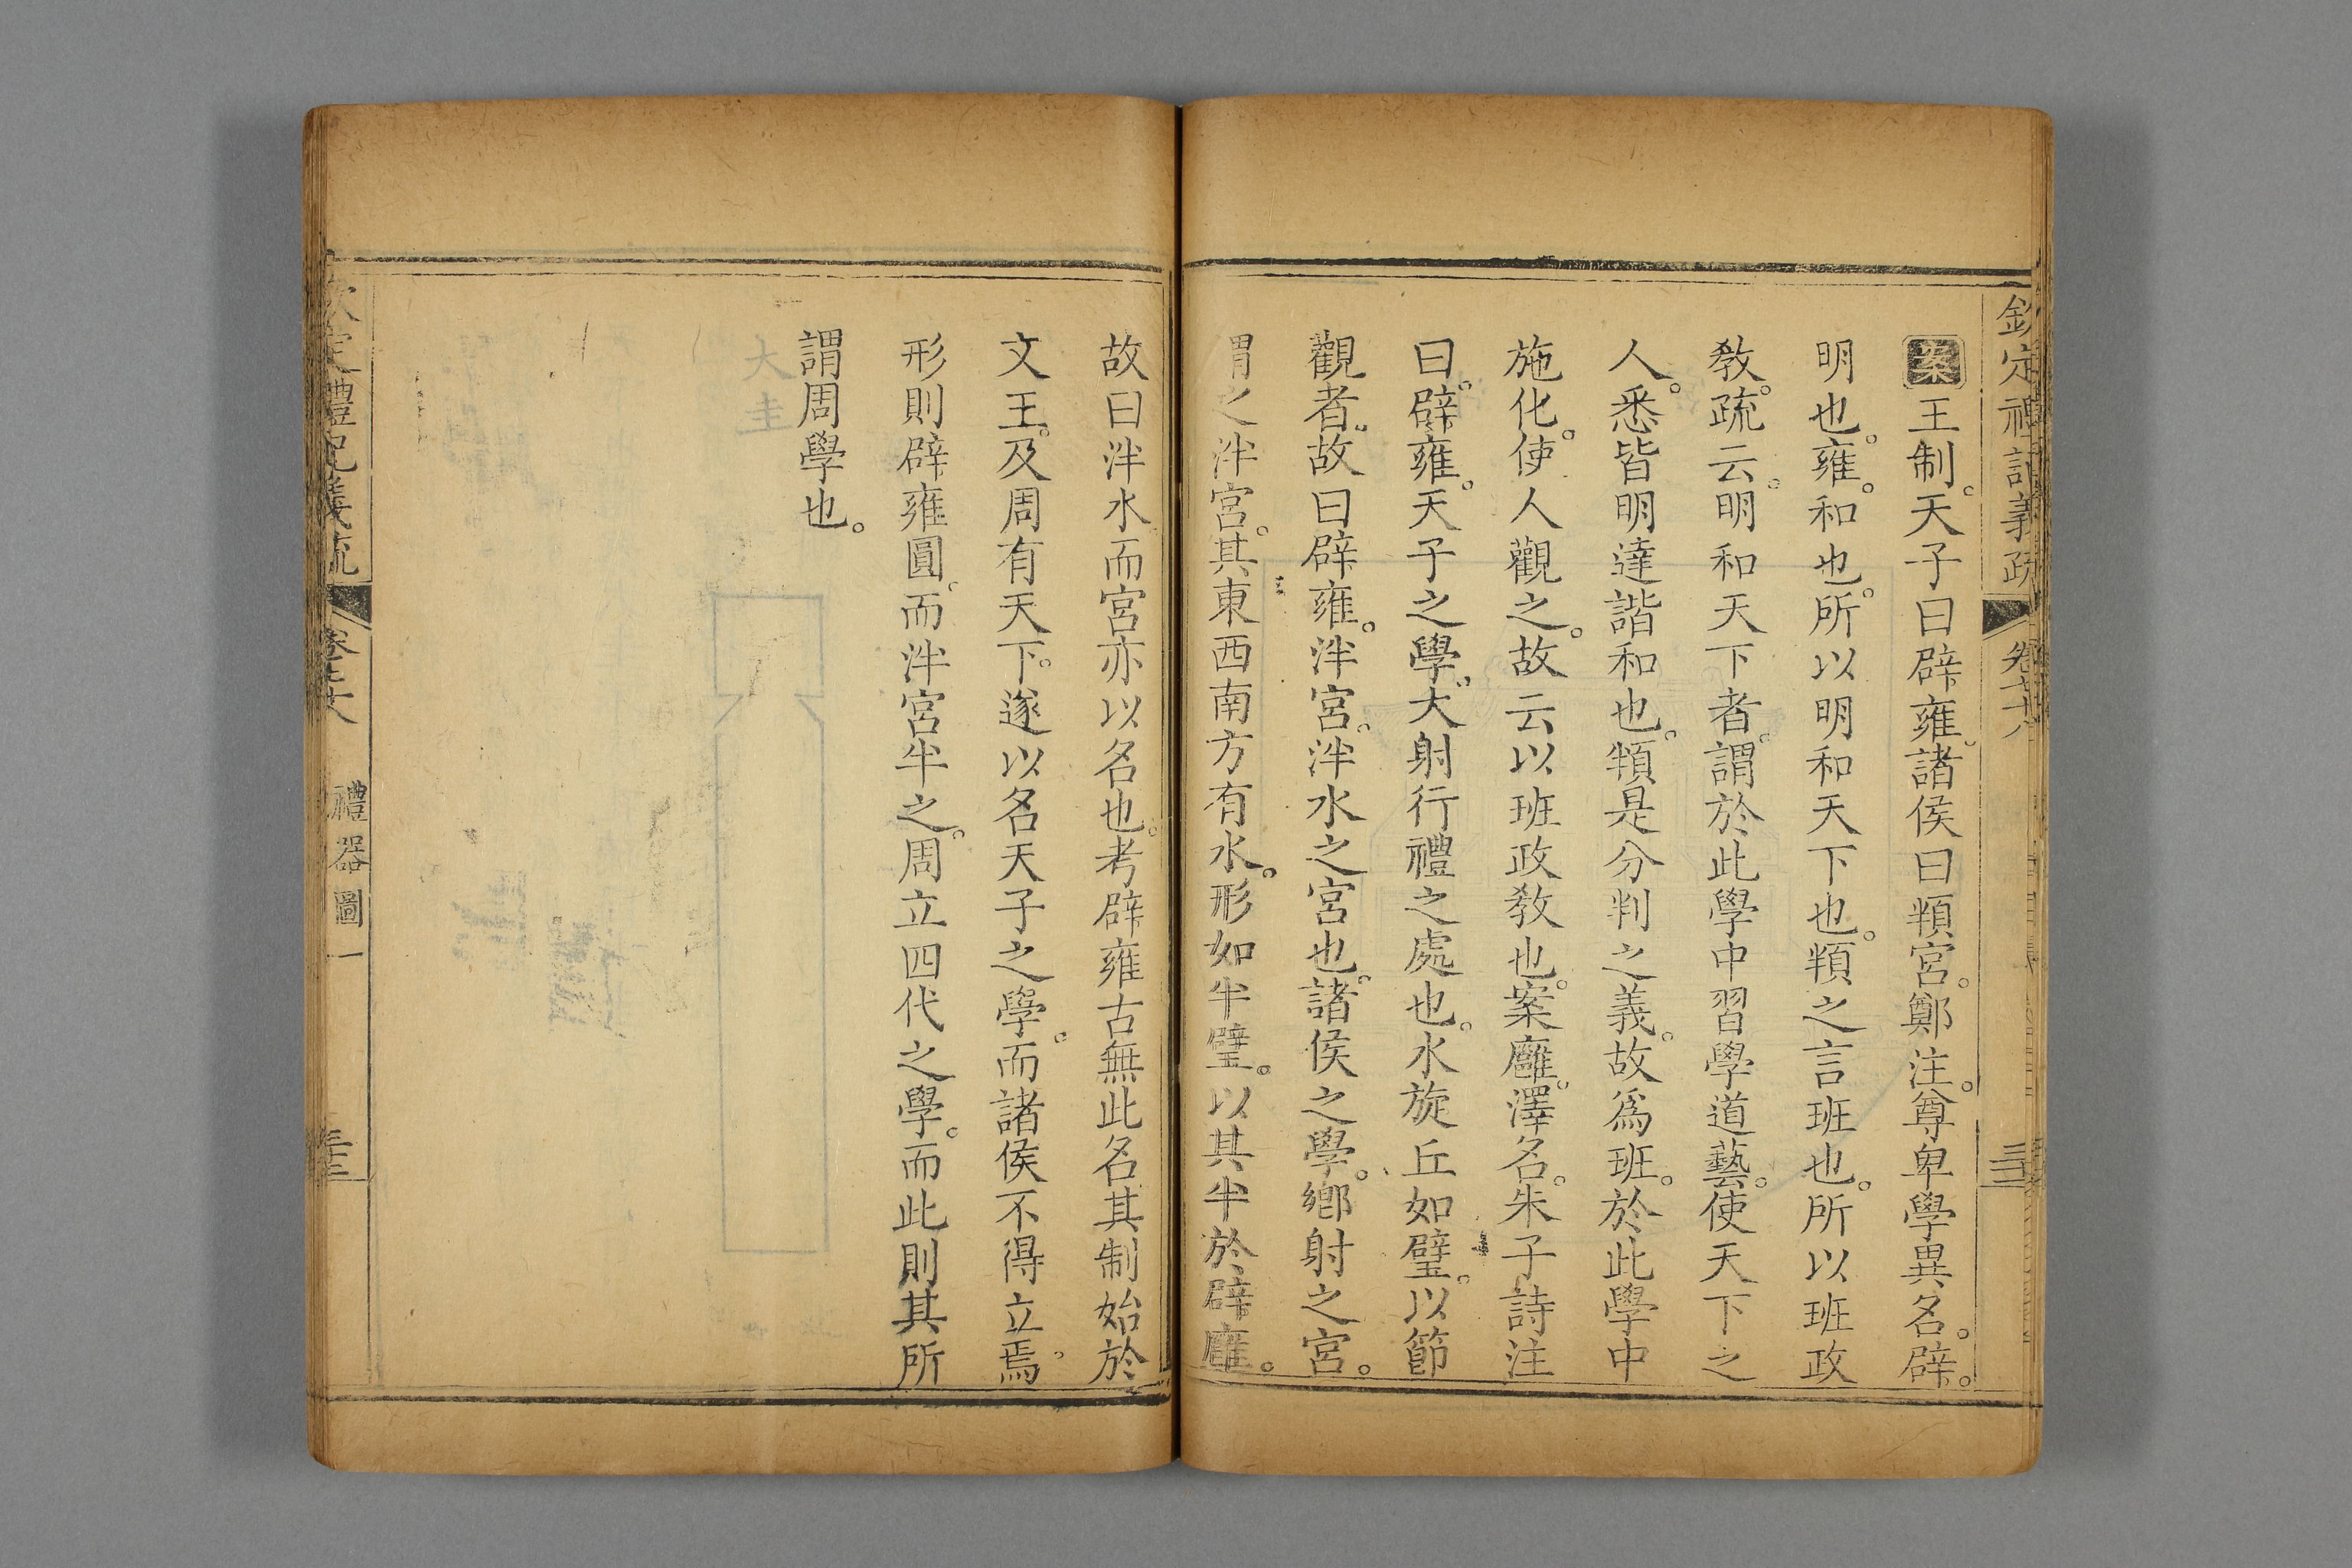 欽定禮記義疏
案王制。天子曰辟雍。諸侯曰頖宮。鄭注。尊卑學異名。辟。
明也。雍。和也。所以明和天下也。頖之言班也。所以班政
教。疏云。明和天下者。謂於此學中習學道藝。使天下之
人。悉皆明達諧和也。頖是分判之義。故爲班。於此學中
施化。使人觀之。故云以班政教也。案廱。澤名。朱子詩注
曰。辟雍。天子之學。大射行禮之處也。水旋丘如璧。以節
觀者。故曰辟雍。泮宮。泮水之宮也。諸侯之學。鄉射之宮。
謂之泮宮。其東西南方有水。形如半璧。以其半於辟廱。
故曰泮水而宮亦以名也。考辟雍古無此名其制始於
文王。及周有天下。遂以名天子之學。而諸侯不得立焉。
形則辟雍圓。而泮宮半之。周立四代之學。而此則其所
謂周學也。
大圭
欽定禮記義疏
禮器圖一